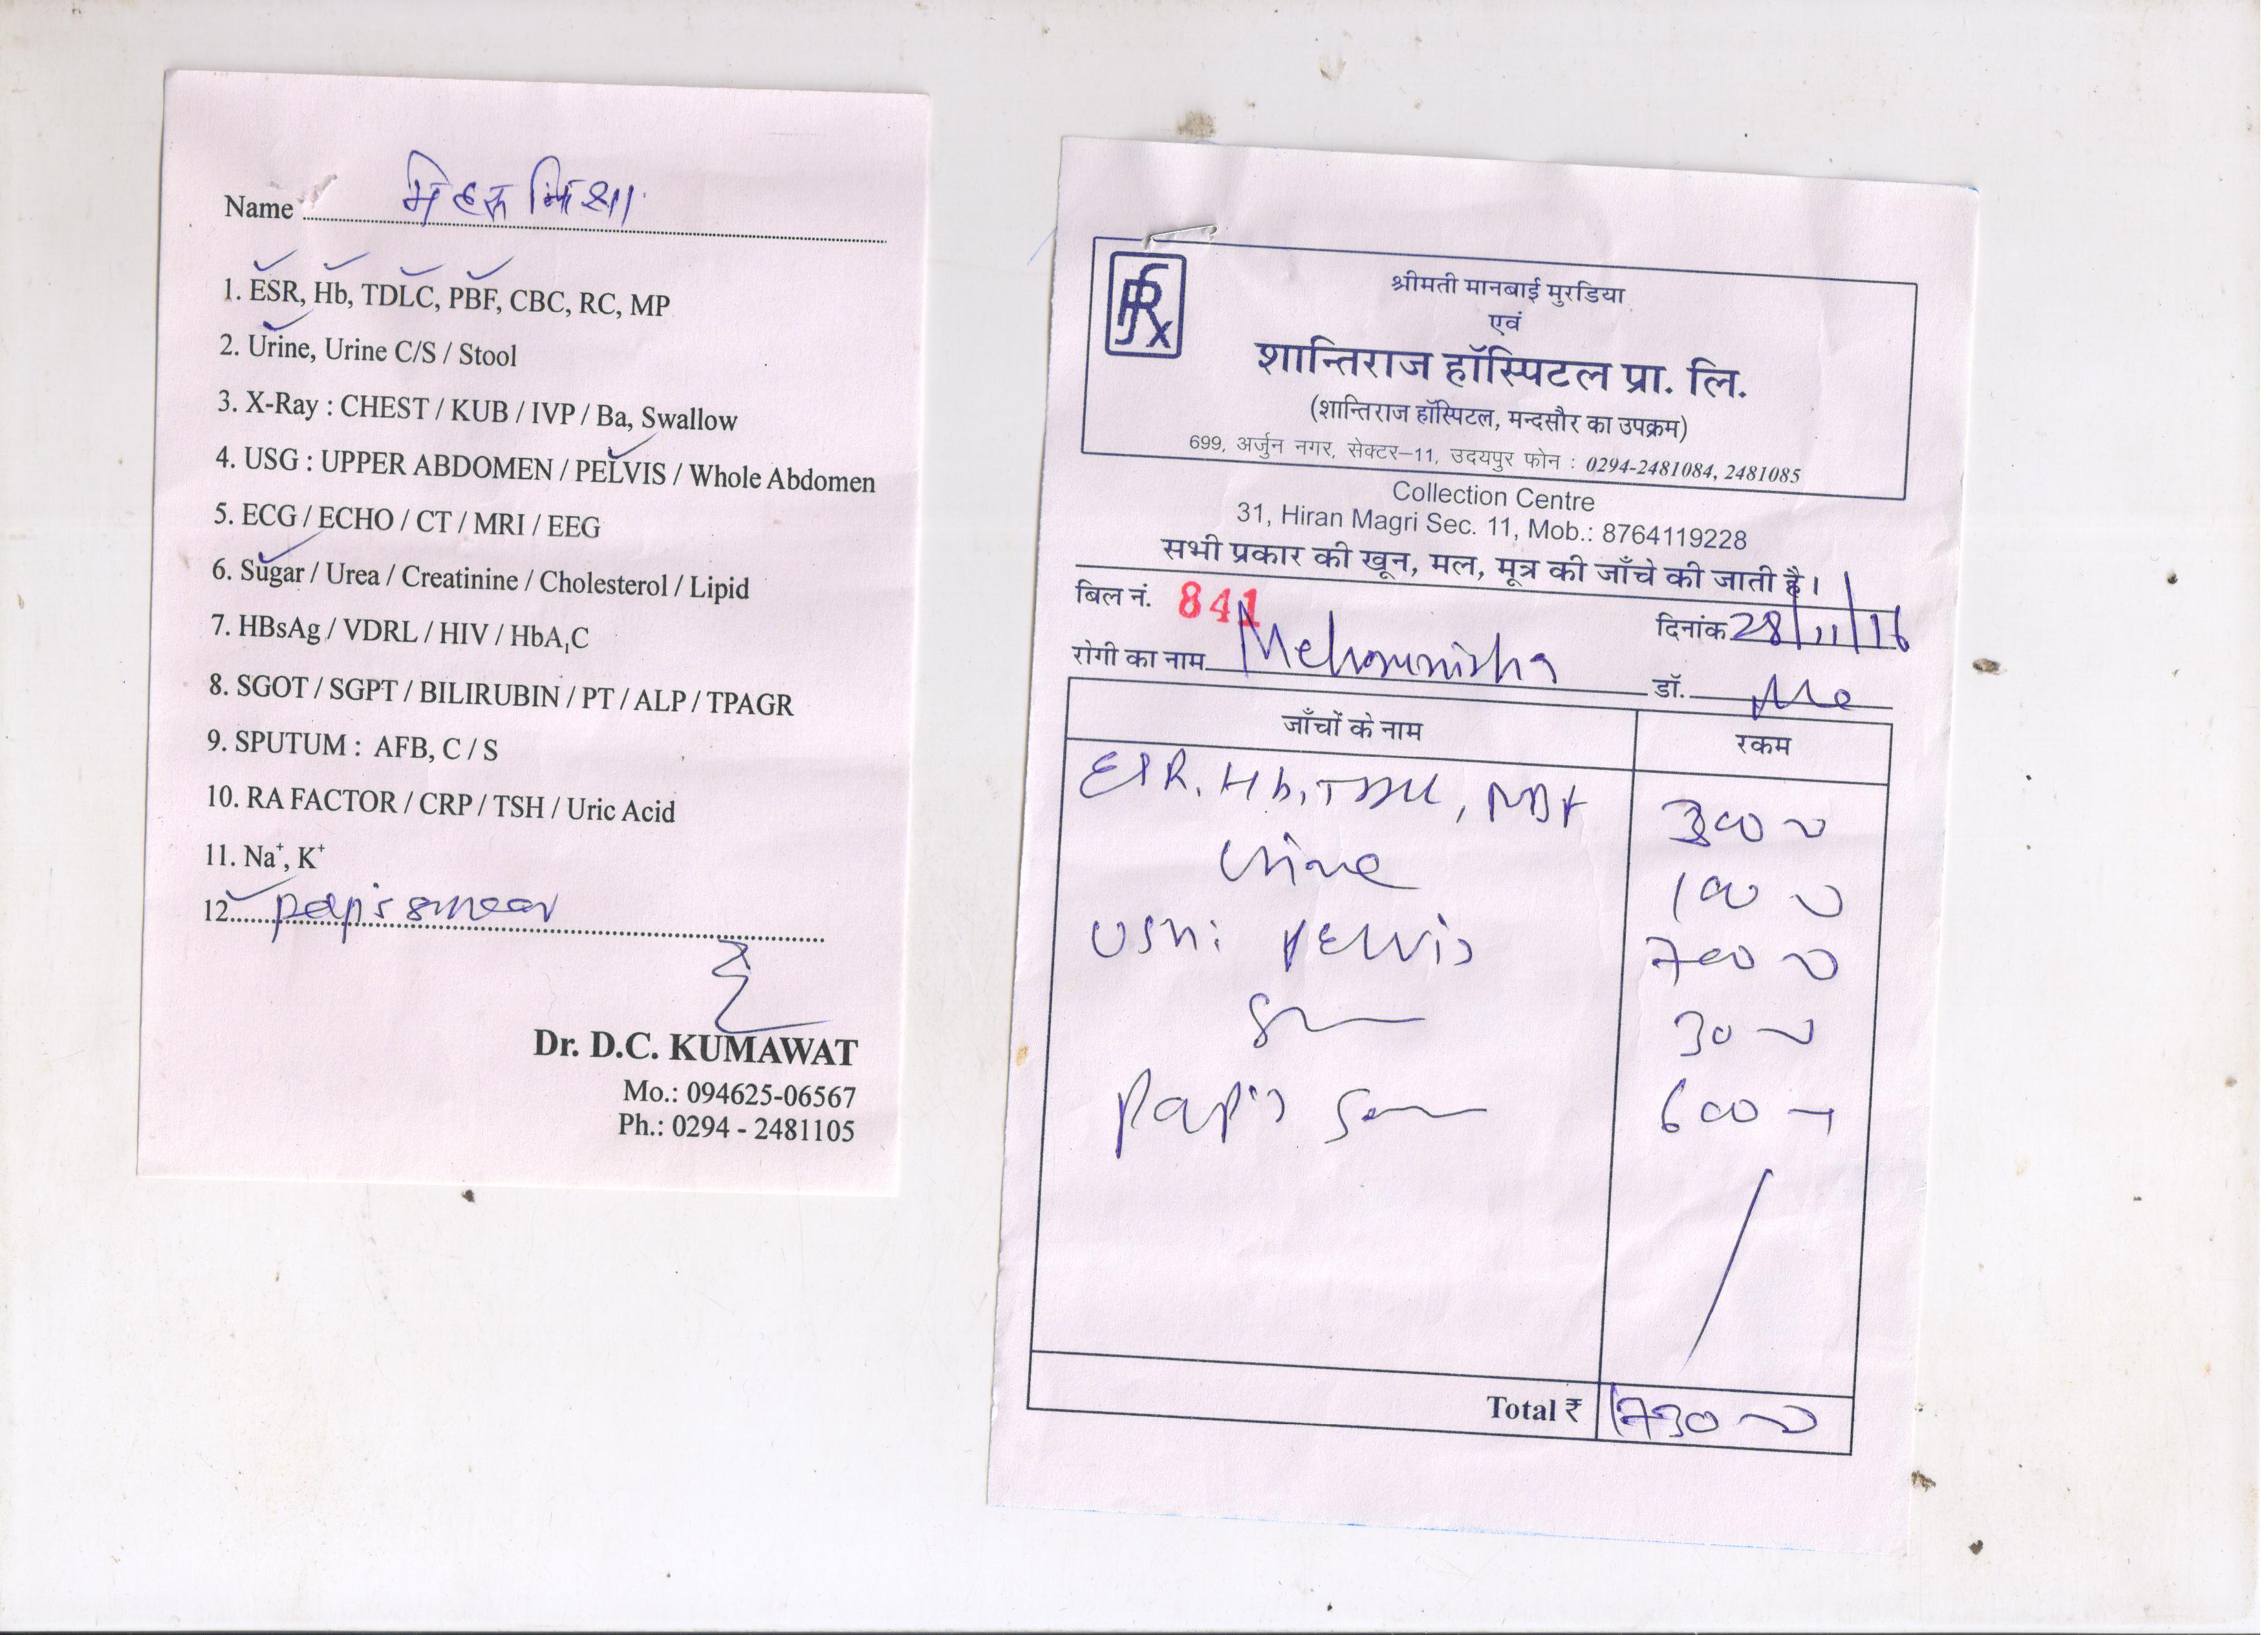 Name मेहरुनिशा
1. ESR, Hb, TDLC, PBF, CBC, RC, MP
2. Urine, Urine C/S / Stool
3. X-Ray : CHEST / KUB / IVP / Ba, Swallow
4. USG : UPPER ABDOMEN / PELVIS / Whole Abdomen
5. ECG / ECHO / CT / MRI / EEG
6. Sugar / Urea / Creatinine / Cholesterol / Lipid
7. HBsAg / VDRL / HIV / HbA₁C
8. SGOT / SGPT / BILIRUBIN / PT / ALP / TPAGR
9. SPUTUM : AFB, C / S
10. RA FACTOR / CRP / TSH / Uric Acid
11. Na⁺, K⁺
12. pap's smear
Dr. D.C. KUMAWAT
Mo.: 094625-06567
Ph.: 0294 - 2481105
श्रीमती मानबाई मुरडिया
एवं
शान्तिराज हॉस्पिटल प्रा. लि.
(शान्तिराज हॉस्पिटल, मन्दसौर का उपक्रम)
699, अर्जुन नगर, सेक्टर-11, उदयपुर फोन : 0294-2481084, 2481085
Collection Centre
31, Hiran Magri Sec. 11, Mob.: 8764119228
सभी प्रकार की खून, मल, मूत्र की जाँचे की जाती है।
बिल नं. 841 दिनांक 28/11/16
रोगी का नाम Mehrunisha डॉ.
जाँचों के नाम रकम
ESR, Hb, TDLC, PBF 300
Urine 100
USG: PELVIS 700
30
Pap's 600
Total ₹ 1730